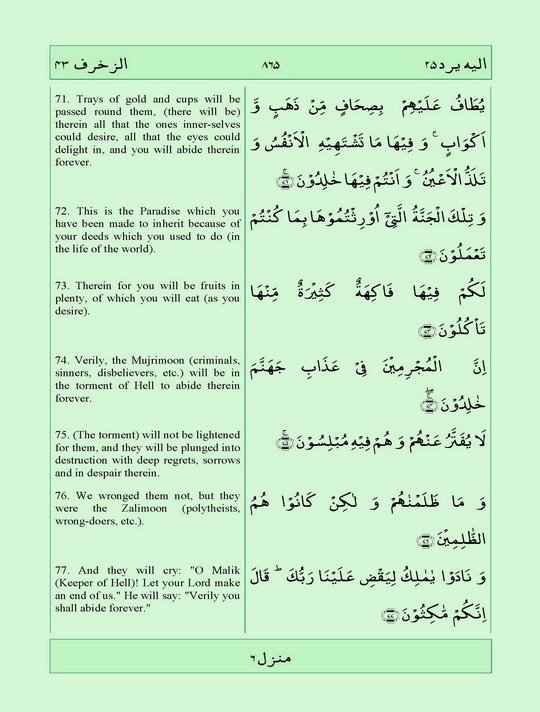 الزخرف ۴۳ ۸۶۵ الیه یرد ۲۵
71. Trays of gold and cups will be
passed round them, (there will be)
therein all that the ones inner-selves
could desire, all that the eyes could
delight in, and you will abide therein
forever.
یُطَافُ عَلَیْهِمْ بِصِحَافٍ مِّنْ ذَهَبٍ وَّ
اَكْوَابٍ ۚ وَ فِیْهَا مَا تَشْتَهِیْهِ الْاَنْفُسُ وَ
تَلَذُّ الْاَعْیُنُ ۚ وَ اَنْتُمْ فِیْهَا خٰلِدُوْنَ ۚ﴿۷۱﴾
72. This is the Paradise which you
have been made to inherit because of
your deeds which you used to do (in
the life of the world).
وَ تِلْكَ الْجَنَّةُ الَّتِیْۤ اُوْرِثْتُمُوْهَا بِمَا كُنْتُمْ
تَعْمَلُوْنَ ﴿۷۲﴾
73. Therein for you will be fruits in
plenty, of which you will eat (as you
desire).
لَكُمْ فِیْهَا فَاكِهَةٌ كَثِیْرَةٌ مِّنْهَا
تَاْكُلُوْنَ ﴿۷۳﴾
74. Verily, the Mujrimoon (criminals,
sinners, disbelievers, etc.) will be in
the torment of Hell to abide therein
forever.
اِنَّ الْمُجْرِمِیْنَ فِیْ عَذَابِ جَهَنَّمَ
خٰلِدُوْنَ ۚۖ﴿۷۴﴾
75. (The torment) will not be lightened
for them, and they will be plunged into
destruction with deep regrets, sorrows
and in despair therein.
لَا یُفَتَّرُ عَنْهُمْ وَ هُمْ فِیْهِ مُبْلِسُوْنَ ۚ﴿۷۵﴾
76. We wronged them not, but they
were the Zalimoon (polytheists,
wrong-doers, etc.).
وَ مَا ظَلَمْنٰهُمْ وَ لٰكِنْ كَانُوْا هُمُ
الظّٰلِمِیْنَ ﴿۷۶﴾
77. And they will cry: "O Malik
(Keeper of Hell)! Let your Lord make
an end of us." He will say: "Verily you
shall abide forever."
وَ نَادَوْا یٰمٰلِكُ لِیَقْضِ عَلَیْنَا رَبُّكَ ؕ قَالَ
اِنَّكُمْ مّٰكِثُوْنَ ﴿۷۷﴾
منزل ۶